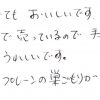 ても おいしいです
で 売っているので 手
うのいいです。
プレーンの巣ごもりか